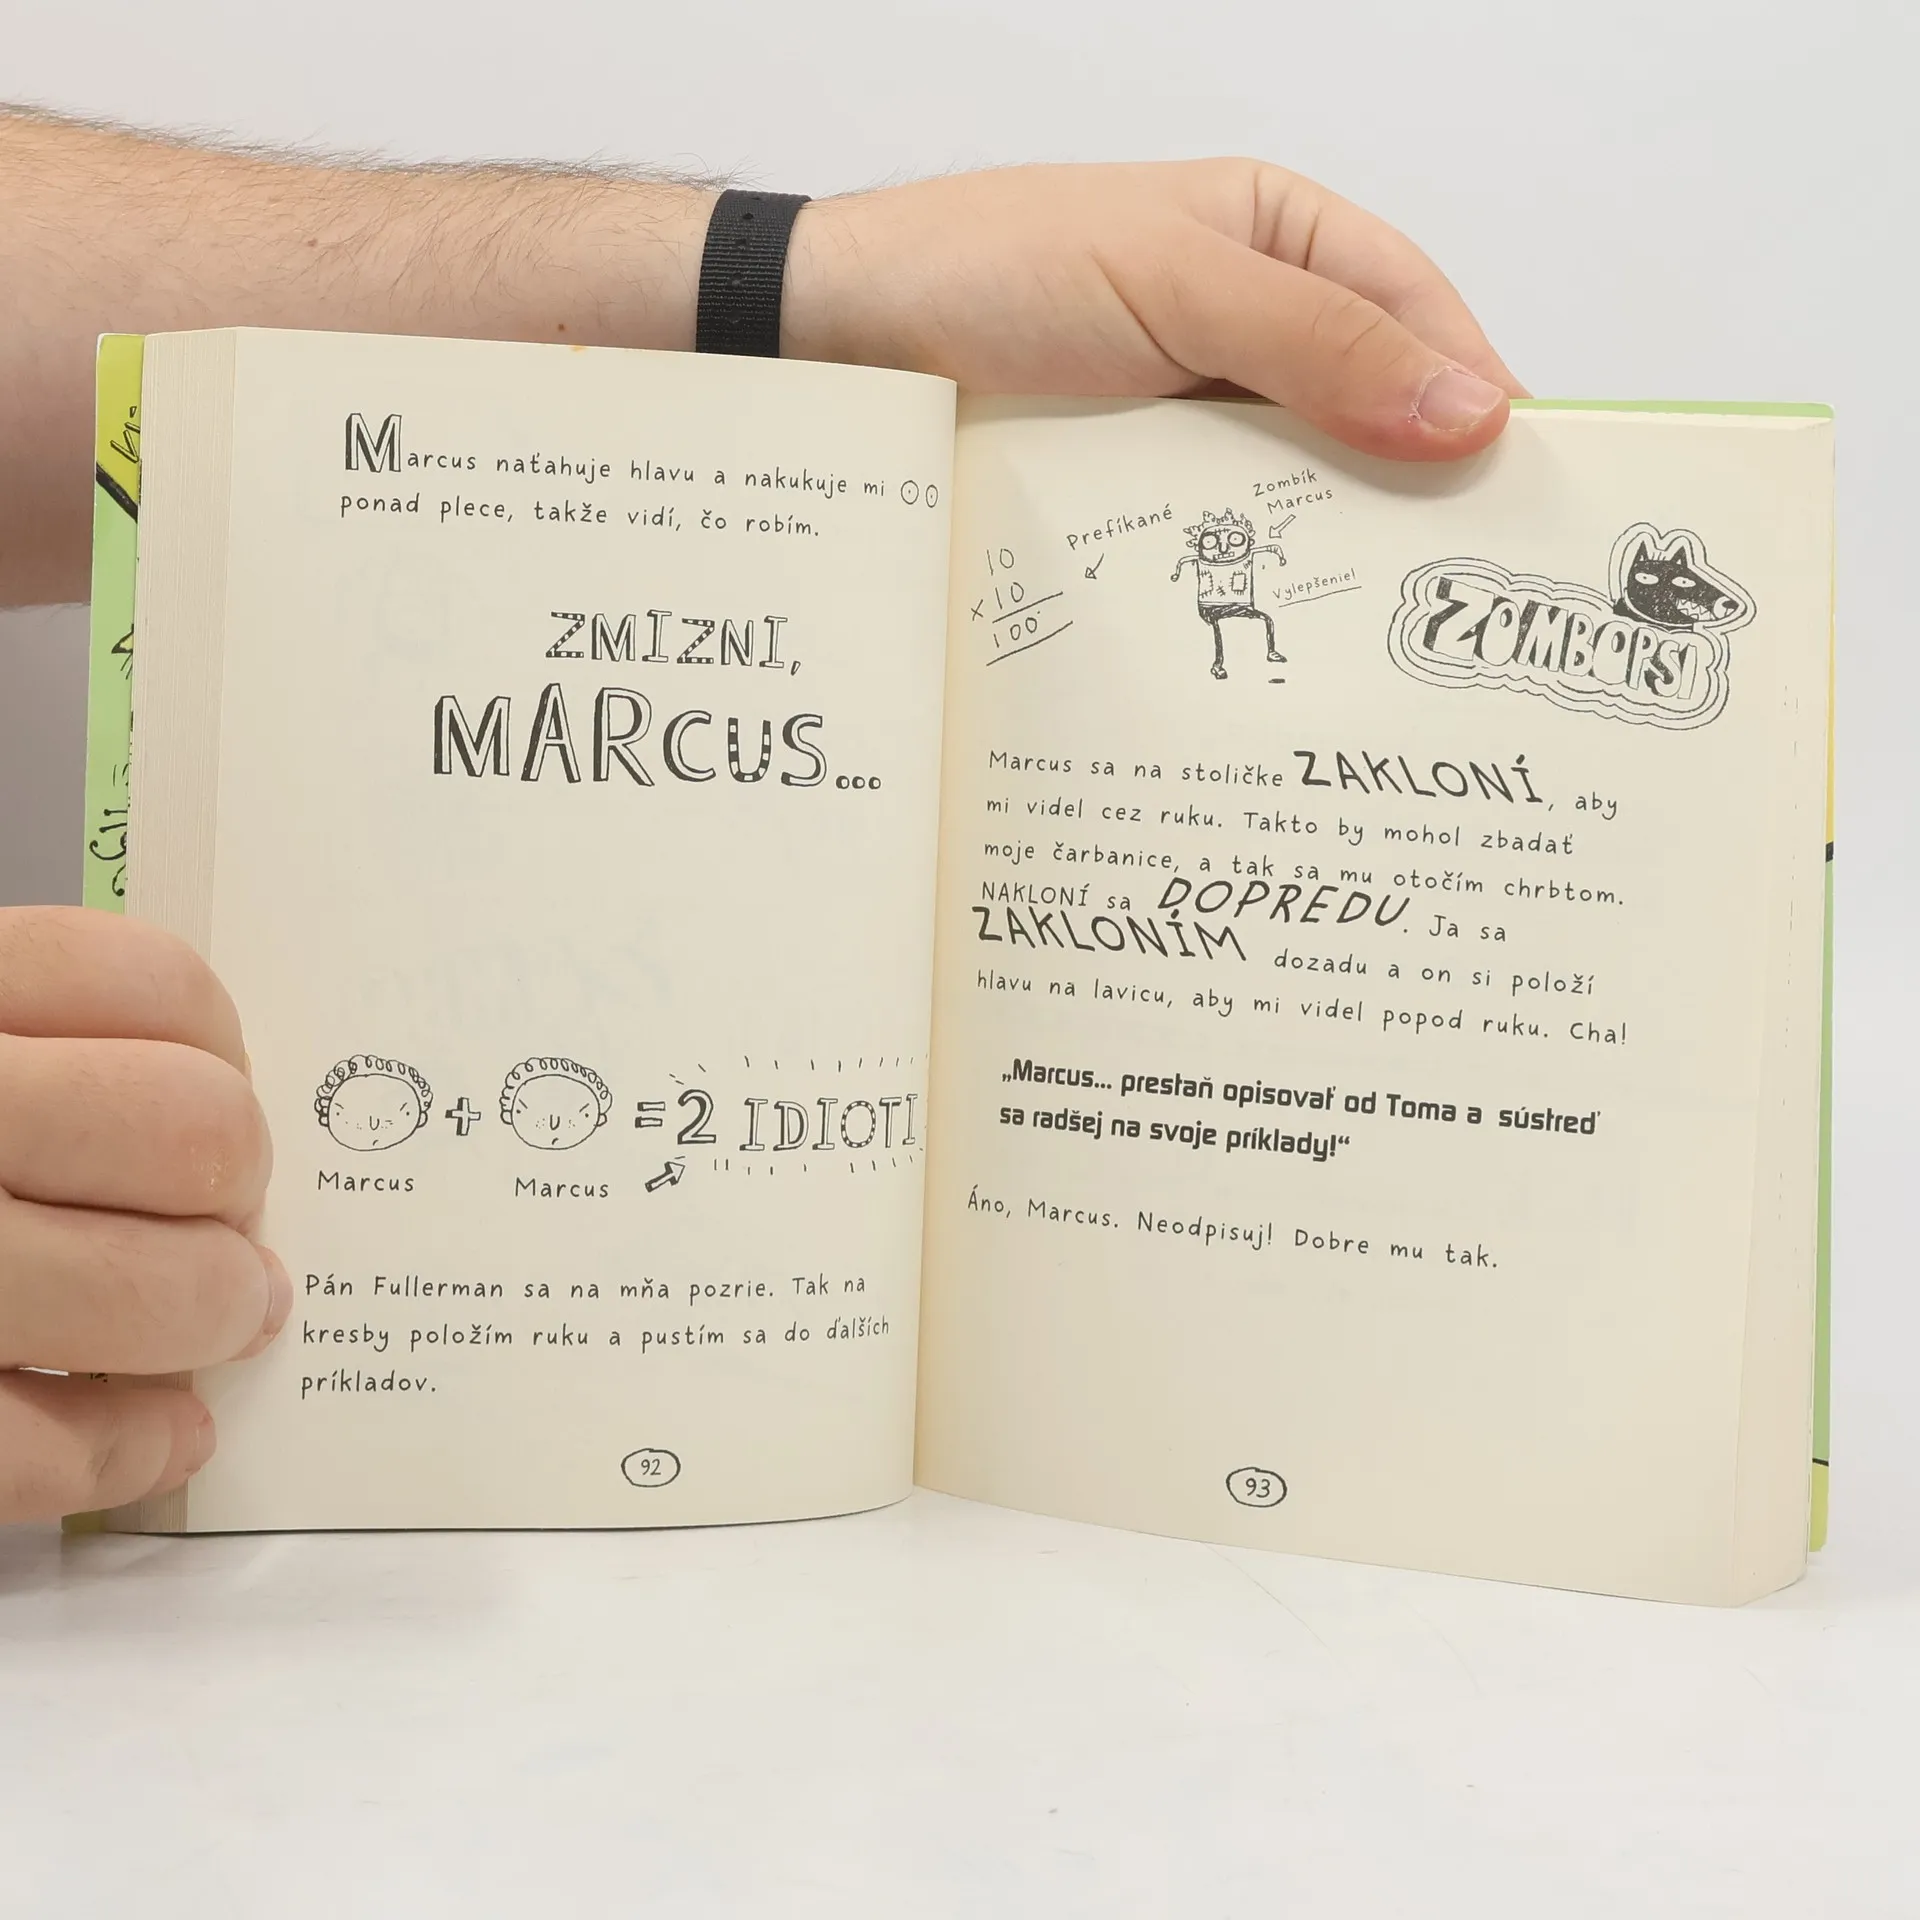 Marcus naťahuje hlavu a nakukuje mi
ponad plece, takže vidí, čo robím.
ZMIZNI,
MARCUS...
+ = 2 IDIOTI
Marcus Marcus
Pán Fullerman sa na mňa pozrie. Tak na
kresby položím ruku a pustím sa do ďalších
príkladov.
92
10
x 10
100
Prefíkané
Zombík
Marcus
Vylepšenie!
ZOMBOPSI
Marcus sa na stoličke ZAKLONÍ, aby
mi videl cez ruku. Takto by mohol zbadať
moje čarbanice, a tak sa mu otočím chrbtom.
NAKLONÍ sa DOPREDU. Ja sa
ZAKLONÍM dozadu a on si položí
hlavu na lavicu, aby mi videl popod ruku. Cha!
„Marcus... prestaň opisovať od Toma a sústreď
sa radšej na svoje príklady!“
Áno, Marcus. Neodpisuj! Dobre mu tak.
93